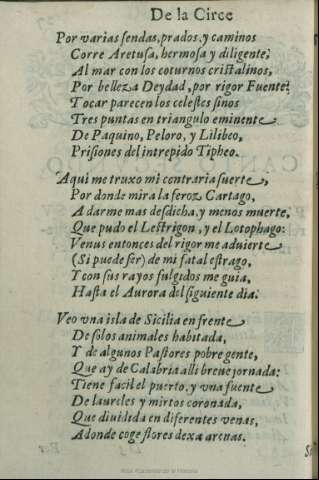 De la Circe
Por varias sendas, prados, y caminos
Corre Aretusa, hermosa y diligente,
Al mar con los coturnos cristalinos,
Por belleza Deydad, por rigor Fuente:
Tocar parecen los celestes sinos
Tres puntas en triangulo eminente
De Paquino, Peloro, y Lilibeo,
Prisiones del intrepido Tipheo.
Aqui me truxo mi contraria suerte,
Por donde mira la feroz Cartago,
A darme mas desdicha, y menos muerte,
Que pudo el Lestrigon, y el Lotophago:
Venus entonces del rigor me aduierte
(Si puede ser) de mi fatal estrago,
Y con sus rayos fulgidos me guia,
Hasta el Aurora del siguiente dia.
Veo vna isla de Sicilia en frente
De solos animales habitada,
Y de algunos Pastores pobre gente,
Que ay de Calabria alli breue jornada:
Tiene facil el puerto, y vna fuente
De laureles y mirtos coronada,
Que diuidida en diferentes venas,
Adonde coge flores dexa arenas.
Real Academia de la Historia